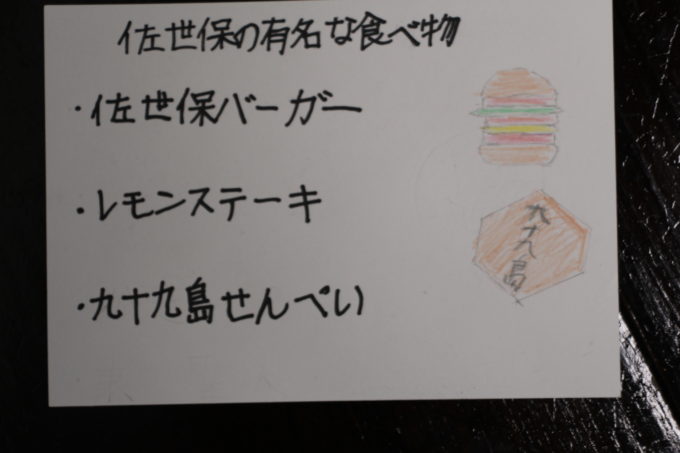 佐世保の有名な食べ物
・佐世保バーガー
・レモンステーキ
九十九島
・九十九島せんぺい